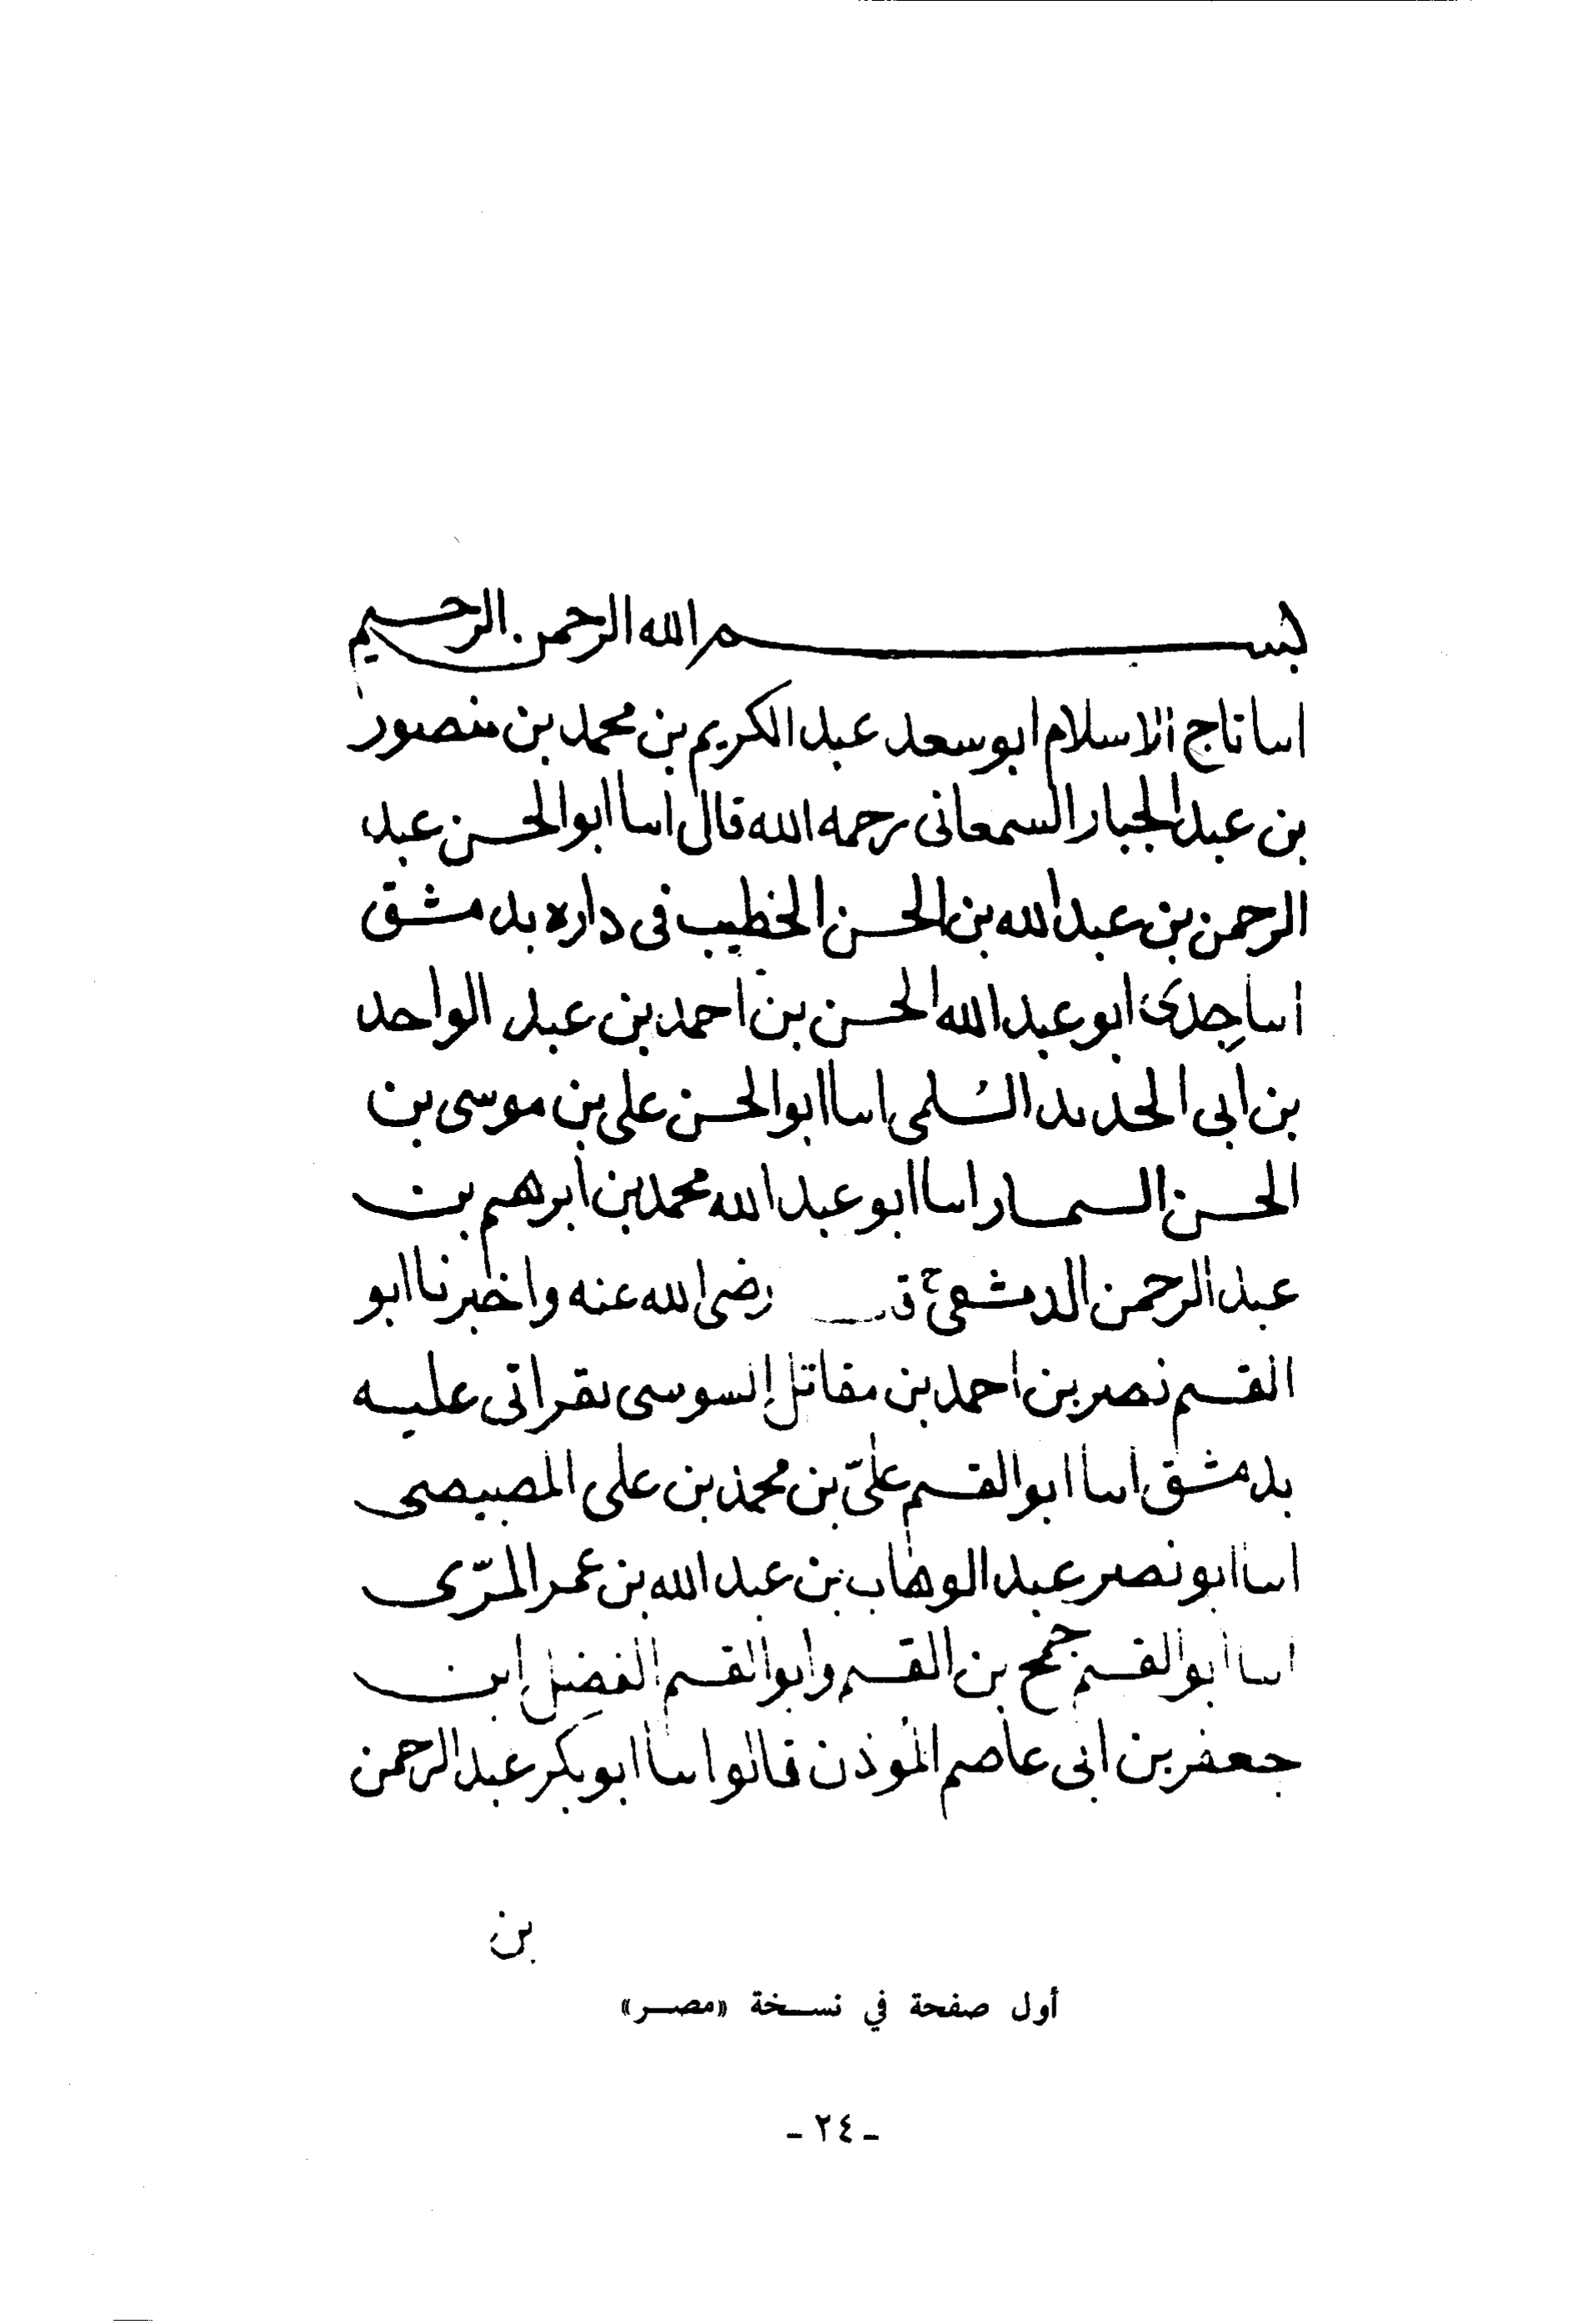 بسم الله الرحمن الرحيم
اسا تاج الاسلام ابو سعد عبد الكريم بن محمد بن منصور
بن عبد الجبار السمعانى رحمه الله قال اسا ابو الحسن عبد
الرحمن بن عبد الله بن الحسن الخطيب فى داره بدمشق
اسا جدى ابو عبد الله الحسن بن احمد بن عبد الواحد
بن ابى الحديد السُلمى اسا ابو الحسن على بن موسى بن
الحسن السمسار اسا ابو عبد الله محمد بن ابرهيم بن
عبد الرحمن الدمشقى ح ق رضى الله عنه واخبرنا ابو
القسم نصر بن احمد بن مقاتل السوسى بقراتى عليه
بدمشق اسا ابو القسم علىّ بن محمد بن على المصيصى
اسا ابو نصر عبد الوهاب بن عبد الله بن عمر المرّى
اسا ابو القسم جمح بن القسم وابو القسم الفضل ابن
جعفر بن ابى عاصم الموذن قالوا اسا ابو بكر عبد الرحمن
بن
أول صفحة في نسخة «مصر»
- ٢٤ -